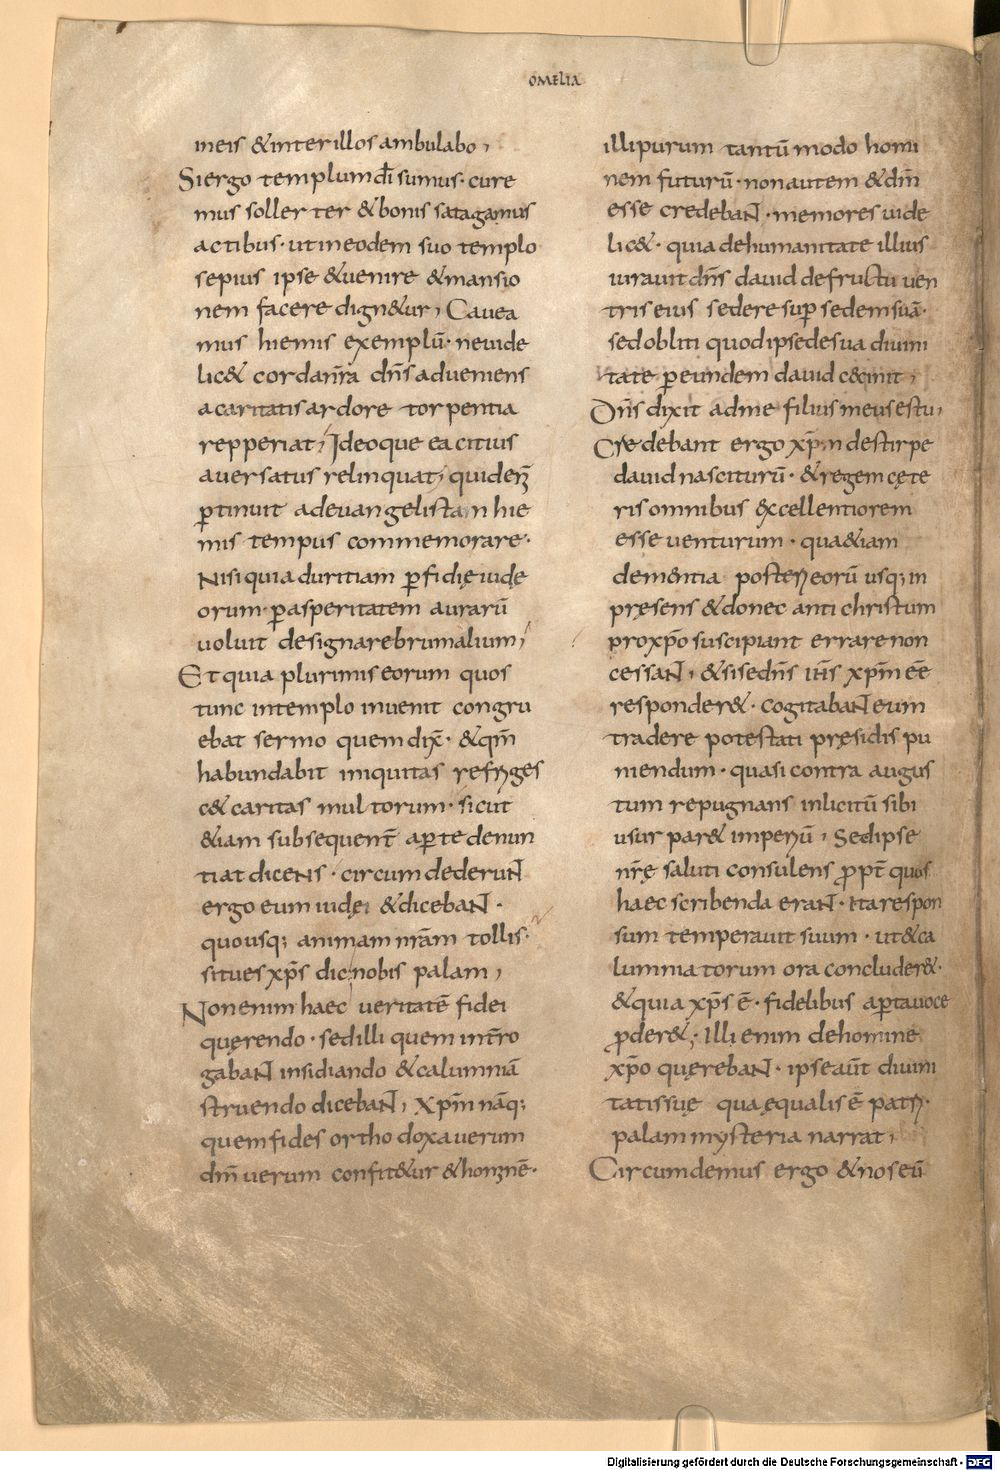 OMELIA
meis &inter illos ambulabo,
Si ergo templum dī sumus· cure
mus soller ter &bonis satagamus
actibus· utineodem suo templo
sepius ipse &uenire &mansio
nem facere dign&ur, Cauea
mus hiemis exemplū· neuide
lic& corda nr̄a dn̄s adueniens
a caritatis ardore torpentia
repperiat, Ideoque ea citius
auersatus relinquat, quid erꝫ
ꝑtinuit adeuangelistam hie
mis tempus commemorare·
Nisi quia duritiam ꝑfidię iudę
orum· ꝑasperitatem aurarū
uoluit designare brumalium,
Et quia plurimis eorum quos
tunc intemplo inuenit congru
ebat sermo quem dix̄· &qm̄
habundabit iniquitas refriges
c& caritas multorum· sicut
&iam subsequent̄ aꝑte denun
tiat dicens· circumdederunt
ergo eum iudęi &dicebant·
quousq; animam nr̄am tollis·
situes xp̄s dic nobis palam,
Non enim haec ueritatē fidei
quęrendo· sed illi quem int̄ro
gabant insidiando &calumniā
struendo dicebant, Xp̄m nāq;
quem fides orthodoxa uerum
dm̄ uerum confit&ur &hominē·
illi purum tantū modo homi
nem futurū· non autem &dm̄
esse credebant· memores uide
lic&· quia dehumanitate illius
iurauit dn̄s dauid defructu uen
tris eius sedere suꝑ sedem suā·
sed obliti quod ipse desua diuini
tate ꝑ eundem dauid cecinit,
Dn̄s dixit adme filius meus es tu,
Credebant ergo xp̄m destirpe
dauid nasciturū· &regem cęte
ris omnibus excellentiorem
esse uenturum· qua&iam
dementia posteri eorū usq; in
pręsens &donec antichristum
pro xp̄o suscipiant errare non
cessant, &si se dn̄s ih̄s xp̄m eē̄
responder&· cogitabant eum
tradere potestati pręsidis pu
niendum· quasi contra augus
tum repugnans inlicitū sibi
usurpar& imperiū, Sed ipse
nr̄ę saluti consulens ꝓpt̄ quos
haec scribenda erant· ita respon
sum temperauit suum· ut&ca
lumniatorum ora concluder&·
&quia xp̄s ē· fidelibus aꝑta uoce
ꝓder&; Illi enim dehomine
xp̄o quęrebant· ipse aūt diuini
tatis suę qua ęqualis ē patri·
palam mysteria narrat,
Circumdemus ergo &nos eū
Digitalisierung gefördert durch die Deutsche Forschungsgemeinschaft - DFG